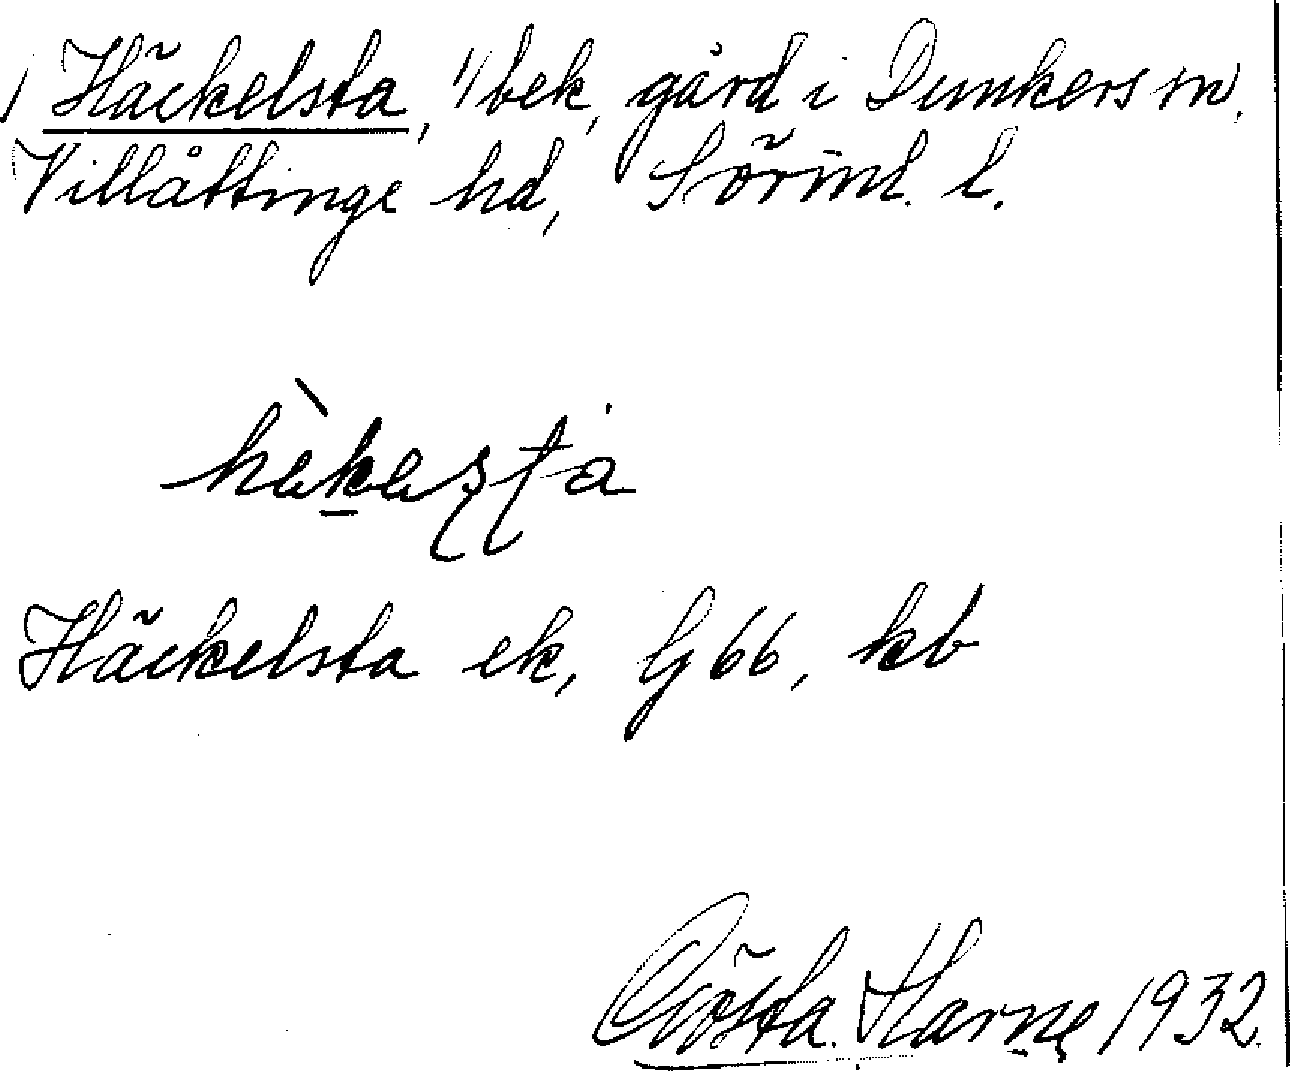 Häckelsta, 1/1 bek, gård i Dunkers sn.
Villåttinge hd, Sörml. l.
Häckelsta ek, G 66, kb
Gösta Harne 1932